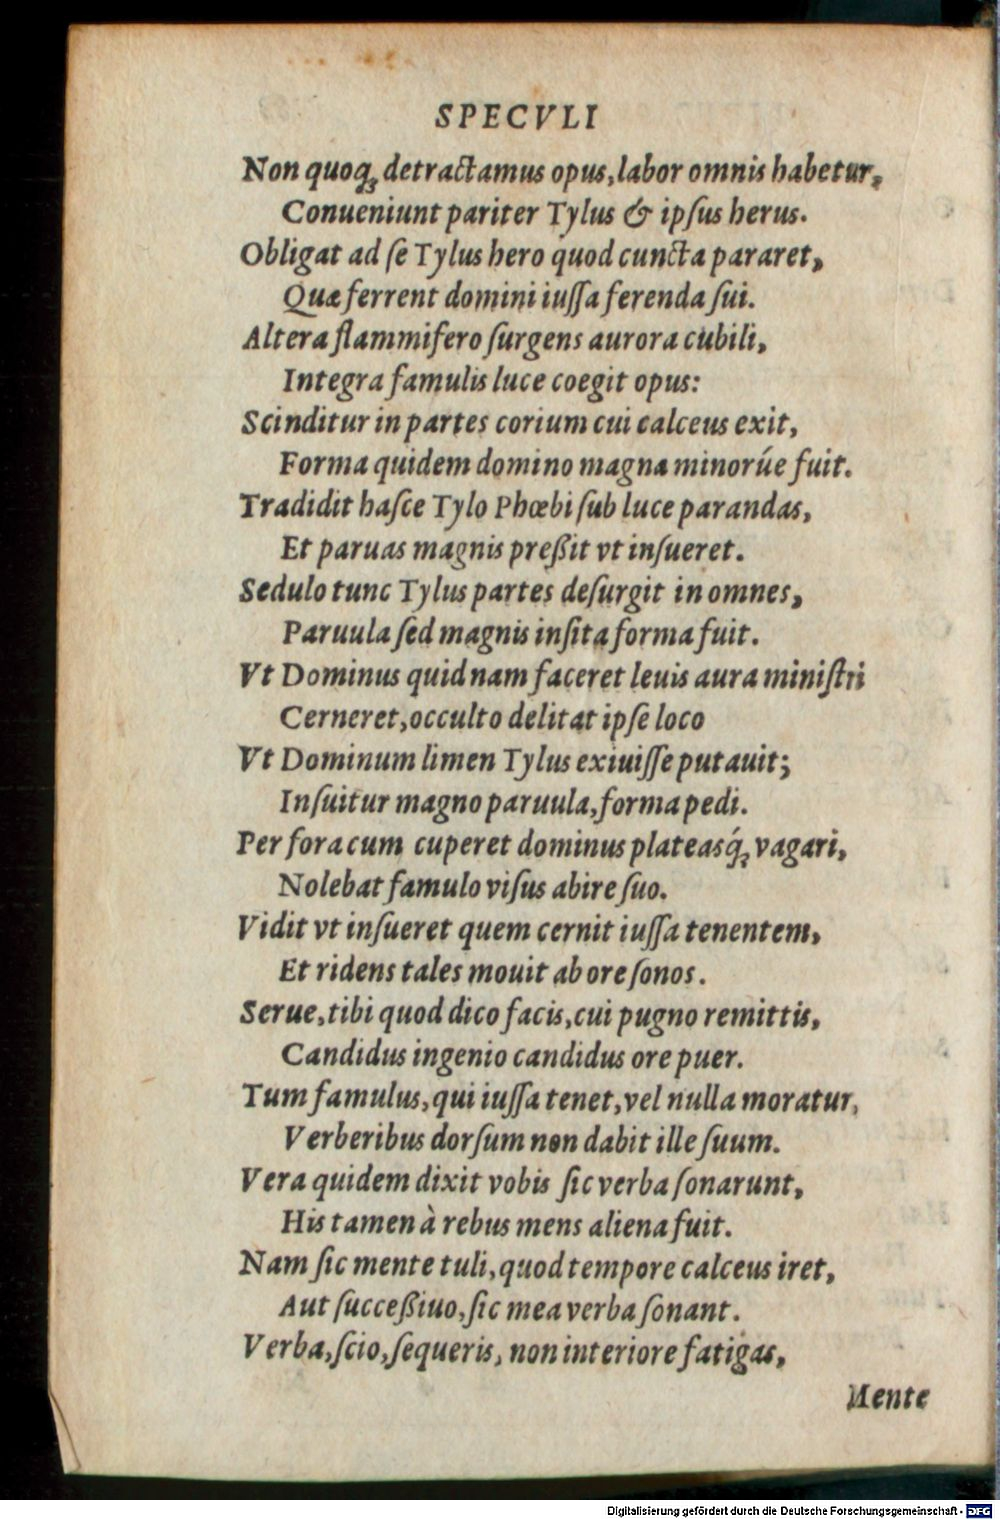 SPECVLI
Non quoq́ꝫ detractamus opus, labor omnis habetur,
Conueniunt pariter Tylus & ipſus herus.
Obligat ad ſe Tylus hero quod cuncta pararet,
Quæ ferrent domini iuſſa ferenda ſui.
Altera flammifero ſurgens aurora cubili,
Integra famulis luce coegit opus:
Scinditur in partes corium cui calceus exit,
Forma quidem domino magna minorúe fuit.
Tradidit haſce Tylo Phœbi ſub luce parandas,
Et paruas magnis preßit vt inſueret.
Sedulo tunc Tylus partes deſurgit in omnes,
Paruula ſed magnis inſita forma fuit.
Vt Dominus quidnam faceret leuis aura miniſtri
Cerneret, occulto delitat ipſe loco
Vt Dominum limen Tylus exiuiſſe putauit;
Inſuitur magno paruula, forma pedi.
Per fora cum cuperet dominus plateasq́ꝫ vagari,
Nolebat famulo viſus abire ſuo.
Vidit vt inſueret quem cernit iuſſa tenentem,
Et ridens tales mouit ab ore ſonos.
Serue, tibi quod dico facis, cui pugno remittis,
Candidus ingenio candidus ore puer.
Tum famulus, qui iuſſa tenet, vel nulla moratur,
Verberibus dorſum non dabit ille ſuum.
Vera quidem dixit vobis ſic verba ſonarunt,
His tamen à rebus mens aliena fuit.
Nam ſic mente tuli, quod tempore calceus iret,
Aut ſucceßiuo, ſic mea verba ſonant.
Verba, ſcio, ſequeris, non interiore fatigas,
Mente
Digitalisierung gefördert durch die Deutsche Forschungsgemeinschaft - DFG